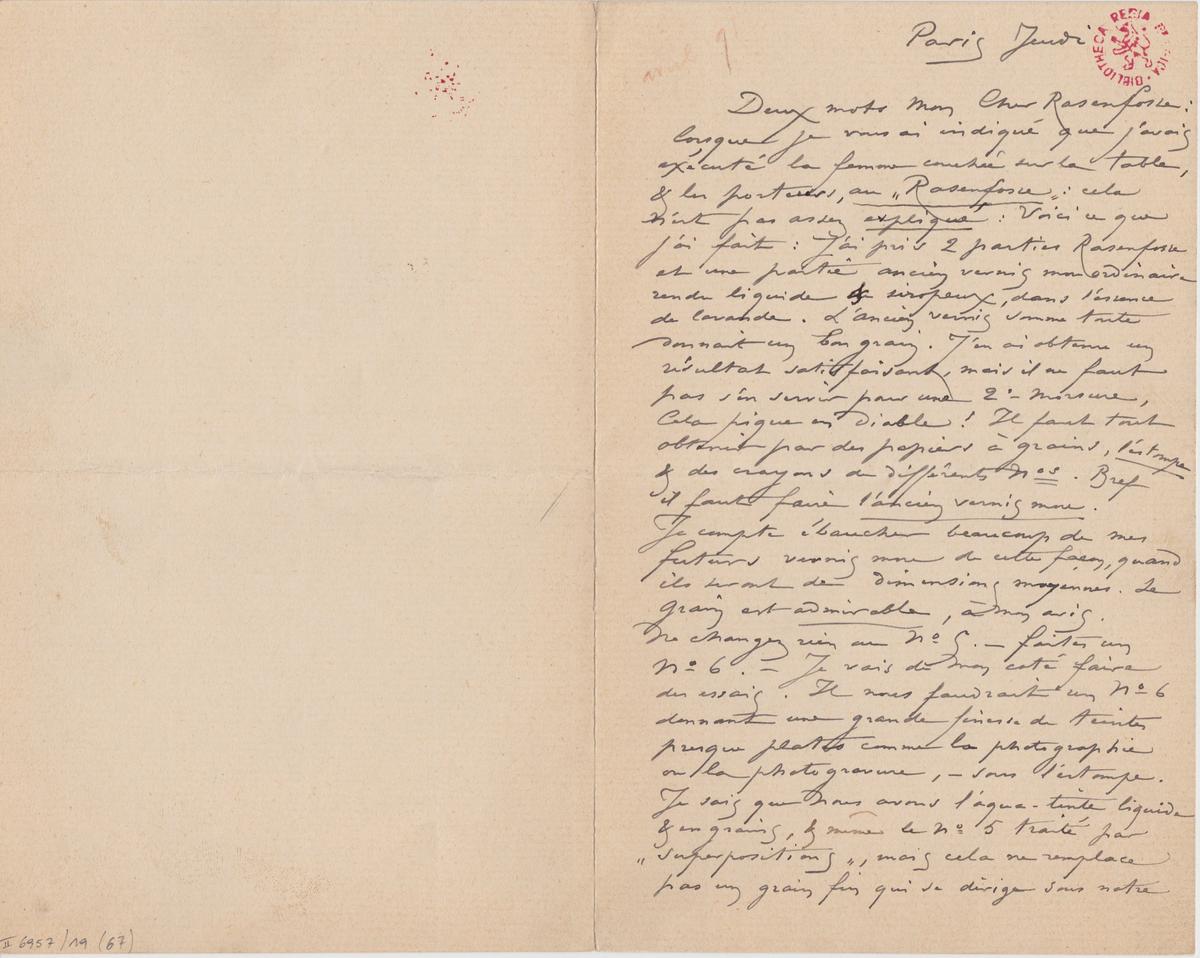 avril 9
Paris Jeudi
BIBLIOTHECA REGIA BELGICA
Deux mots Mon Cher Rasenfosse :
lorsque je vous ai indiqué que j'avais
exécuté la femme couchée sur la table,
& les porteurs, au „Rasenfosse„ : cela
n'est pas assez expliqué : Voici ce que
j'ai fait : J'ai pris 2 parties Rasenfosse
et une partie ancien vernis mou ordinaire
rendu liquide & siropeux, dans l'essence
de lavande. L'ancien vernis somme toute
donnait un bon grain. J'en ai obtenu un
résultat satisfaisant, mais il ne faut
pas s'en servir pour une 2e- morsure,
Cela pique en Diable ! Il faut tout
obtenir par des papiers à grains, l'estompe
& des crayons de différents Nos. Bref
il faut faire l'ancien vernis mou.
Je compte ébaucher beaucoup de mes
futurs vernis mou de cette façon, quand
ils seront de dimensions moyennes. Le
grain est admirable, à mon avis.
Ne changez rien au No 5. — faites un
No 6. — Je vais de mon coté faire
des essais. Il nous faudrait un No 6
donnant une grande finesse de teintes
presque plates comme la photographie
ou la photogravure, — sous l'estompe.
Je sais que nous avons l'aqua-tinte liquide
& en grains, & même le No 5 traité par
„superpositions„, mais cela ne remplace
pas un grain fin qui se dirige sous notre
II 6957/19 (67)